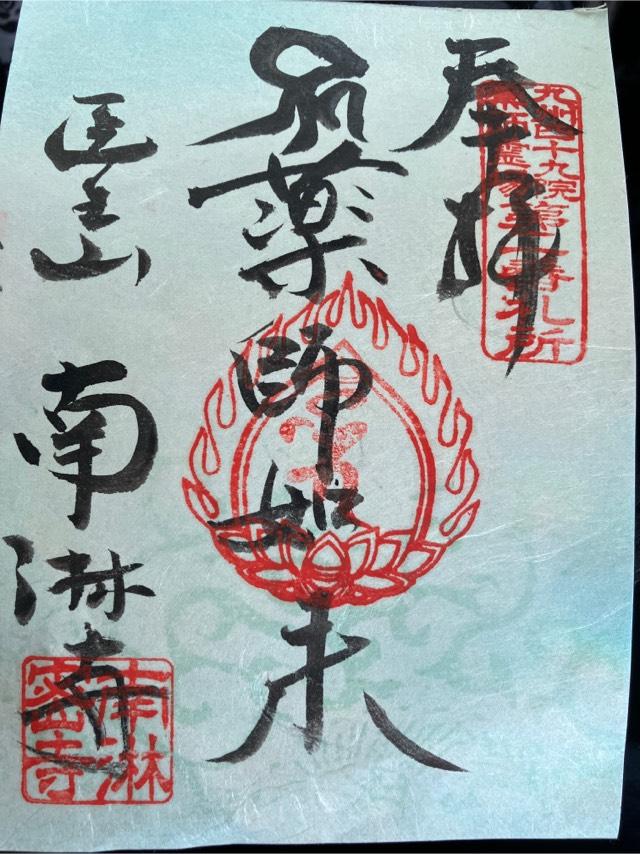 奉拝
九州四十九院
薬師霊場第二番札所
薬師如来
医王山
南淋寺
南淋
密寺